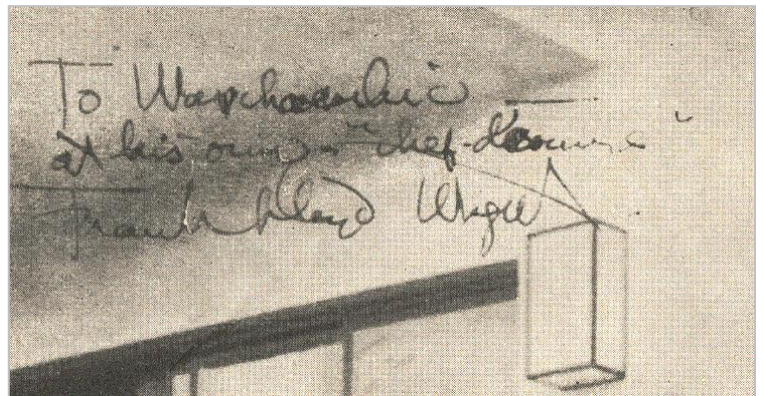 To Warchavchic
at his own "chef-d'œuvre"
Frank Lloyd Wright